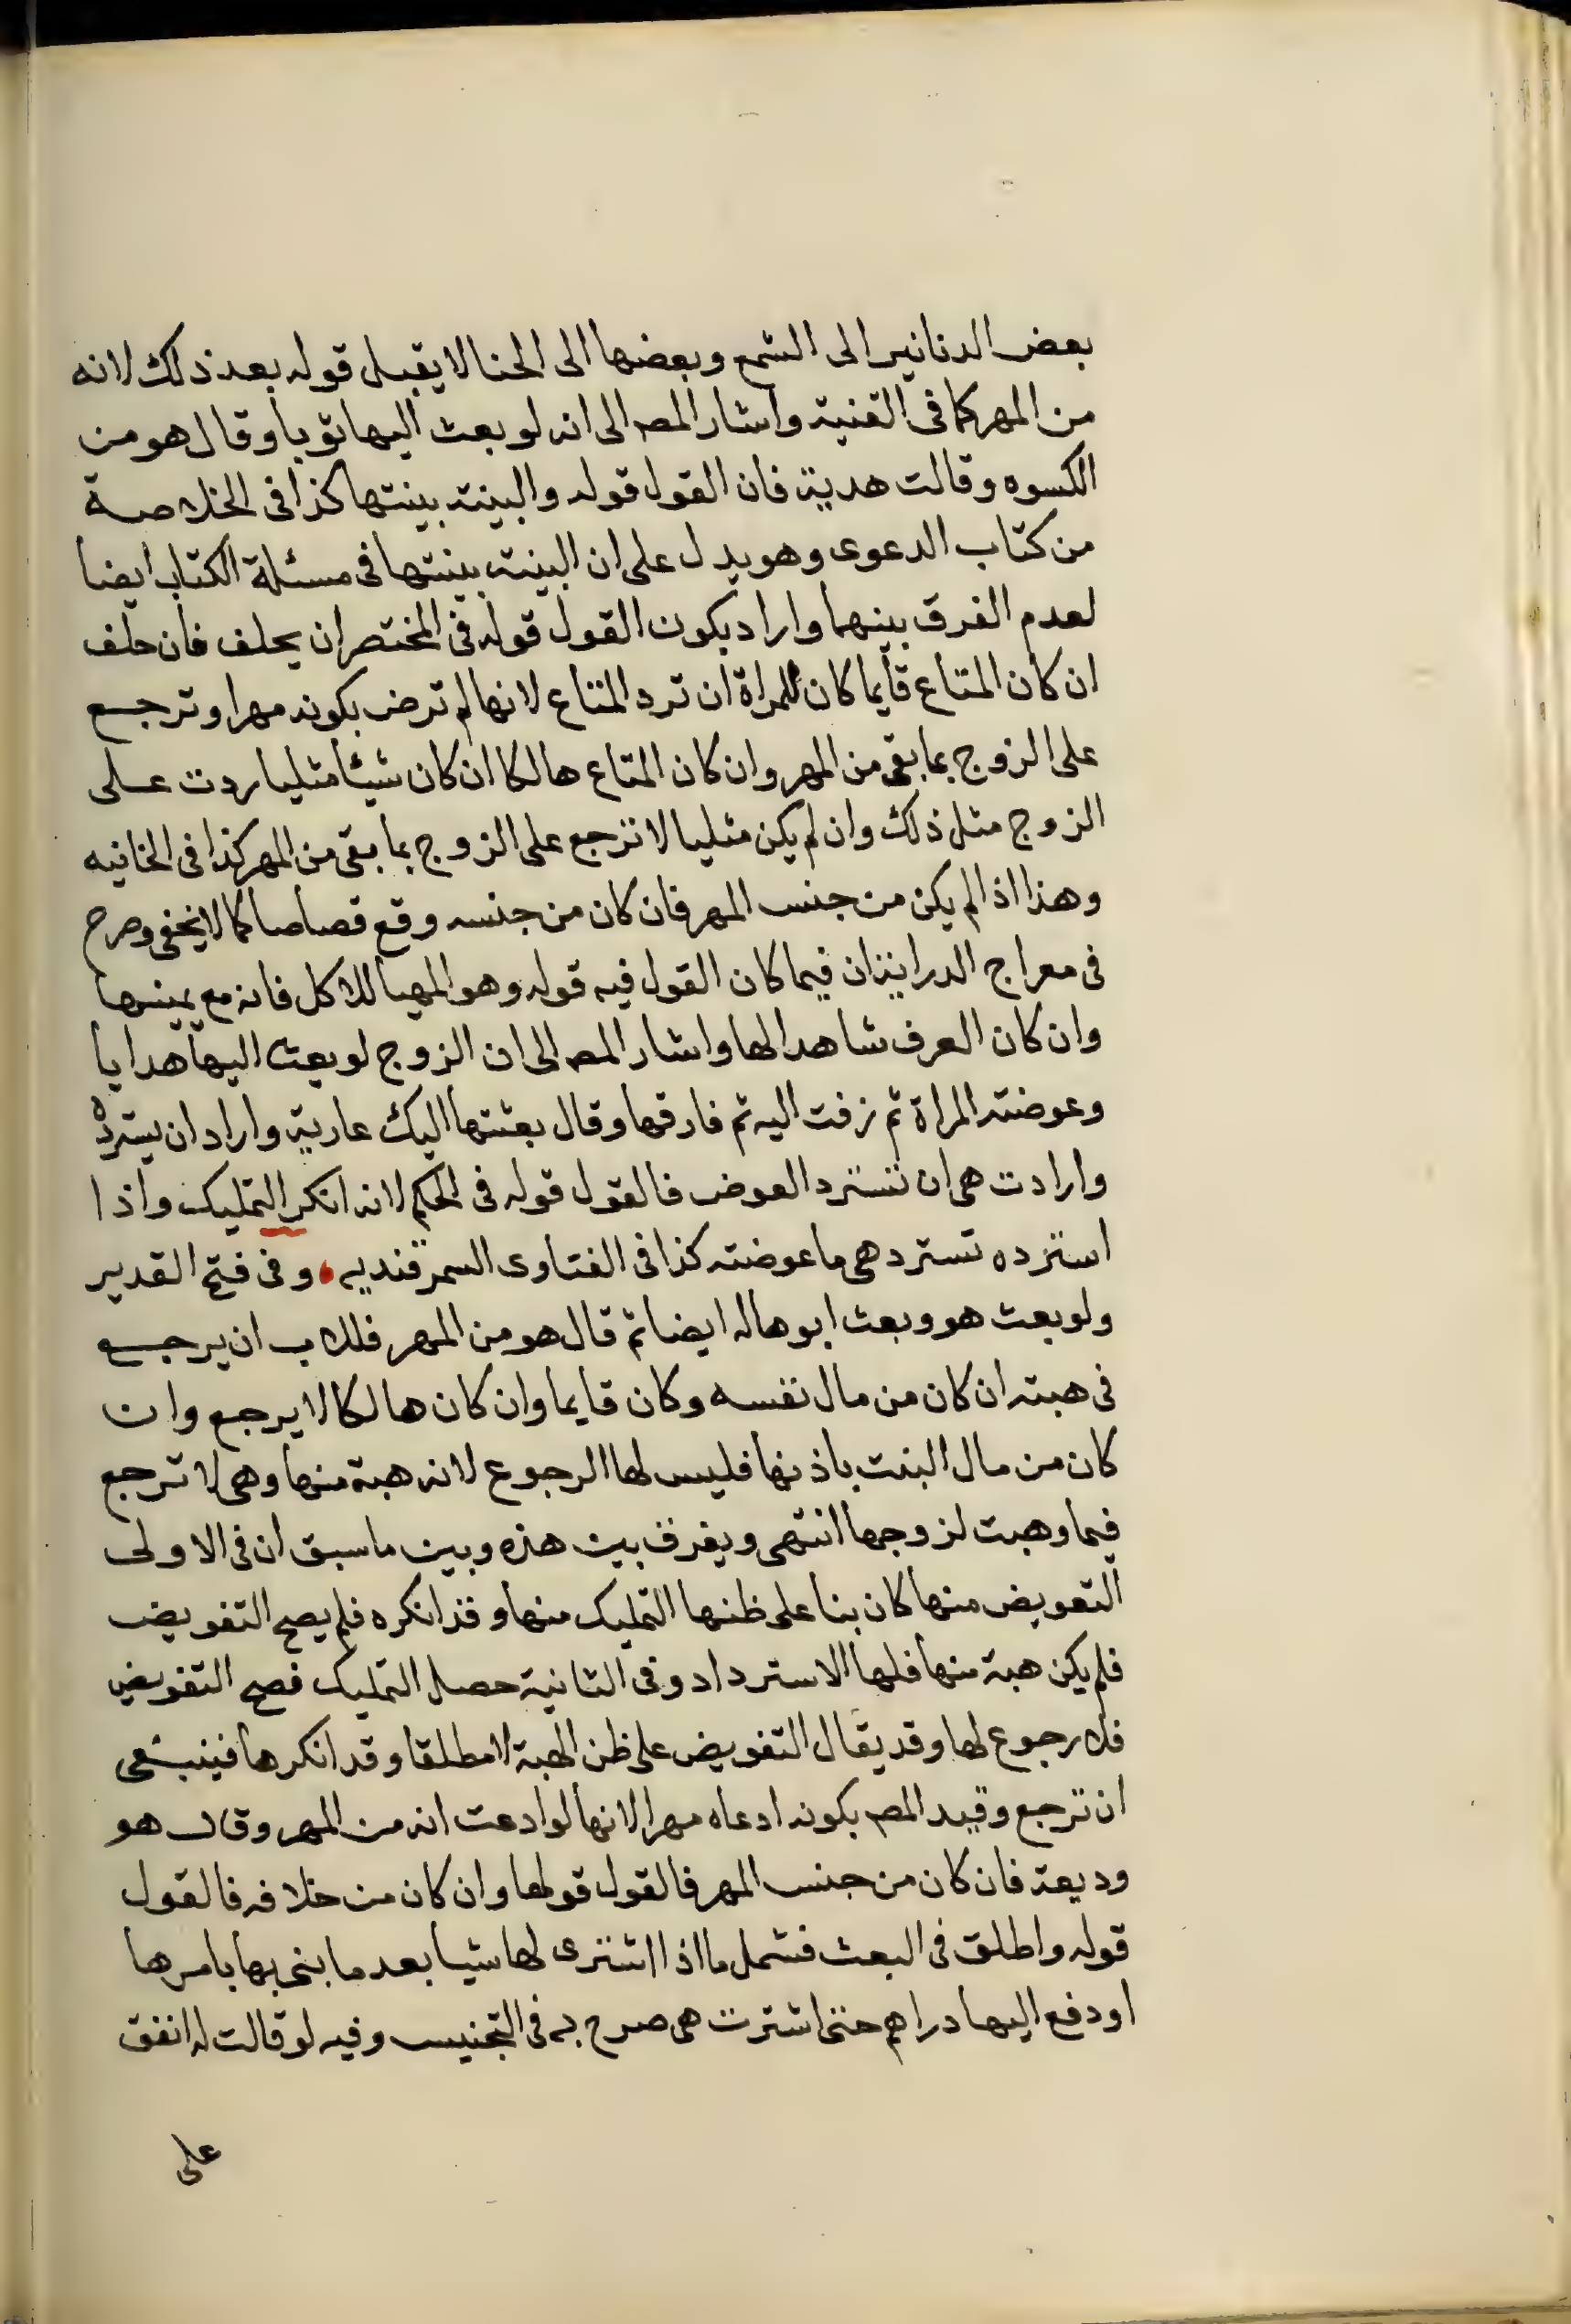 بعض الدنانير الى الشمع وبعضها الى الحنا لا يقبل قوله بعد ذلك لانه
من المهر كما فى القنية واشار المصـ الى انه لو بعث اليها ثوبا وقال هو من
الكسوه وقالت هدية فان القول قوله والبينة بينتها كذا فى الخلاصة
من كتاب الدعوى وهو يدل على ان البينة بينتها فى مسئلة الكتاب ايضا
لعدم الفرق بينهما واراد بكون القول قوله فى المختصر ان يحلف فان حلف
ان كان المتاع قايما كان للمراة ان ترد المتاع لانها لم ترض بكونه مهرا وترجع
على الزوج بما بقى من المهر وان كان المتاع هالكا ان كان شيئا مثليا ردت على
الزوج مثل ذلك وان لم يكن مثليا لا ترجع على الزوج بما بقى من المهر كذا فى الخانيه
وهذا اذا لم يكن من جنس المهر فان كان من جنسه وقع قصاصا كما لا يخفى وصرح
فى معراج الدراية ان فيما كان القول فيه قوله وهو المهيا للاكل فانه مع يمينها
وان كان العرف شاهدا لها واشار المصـ الى ان الزوج لو بعث اليها هدايا
وعوضته المراة ثم زفت اليه ثم فارقها وقال بعثتها اليك عارية واراد ان يسترده
وارادت هى ان تسترد العوض فالقول قوله فى الحكم لانه انكر التمليك واذا
استرده تسترد هى ما عوضته كذا فى الفتاوى السمرقنديه وفى فتح القدير
ولو بعث هو وبعث ابوها له ايضا ثم قال هو من المهر فللاب ان يرجع
فى هبته ان كان من مال نفسه وكان قايما وان كان هالكا لا يرجع وان
كان من مال البنت باذنها فليس لها الرجوع لانه هبة منها وهى لا ترجع
فيما وهبت لزوجها انتهى ويفرق بين هذه وبين ما سبق ان فى الاولى
التعويض منها كان بنا على ظنها التمليك منها وقد انكره فلم يصح التفويض
فلم يكن هبة منها فلها الاسترداد وفى الثانية حصل التمليك فصح التفويض
فلا رجوع لها وقد يقال التفويض على ظن الهبة لا مطلقا وقد انكرها فينبغى
ان ترجع وقيد المصـ بكونه ادعاه مهرا لانها لو ادعت انه من المهر وقال هو
وديعة فان كان من جنس المهر فالقول قولها وان كان من خلافه فالقول
قوله واطلق فى البعث فشمل ما اذا اشترى لها شيا بعد ما بنى بها بامرها
او دفع اليها دراهم حتى اشترت هى صرح به فى التجنيس وفيه لو قالت له انفق
على